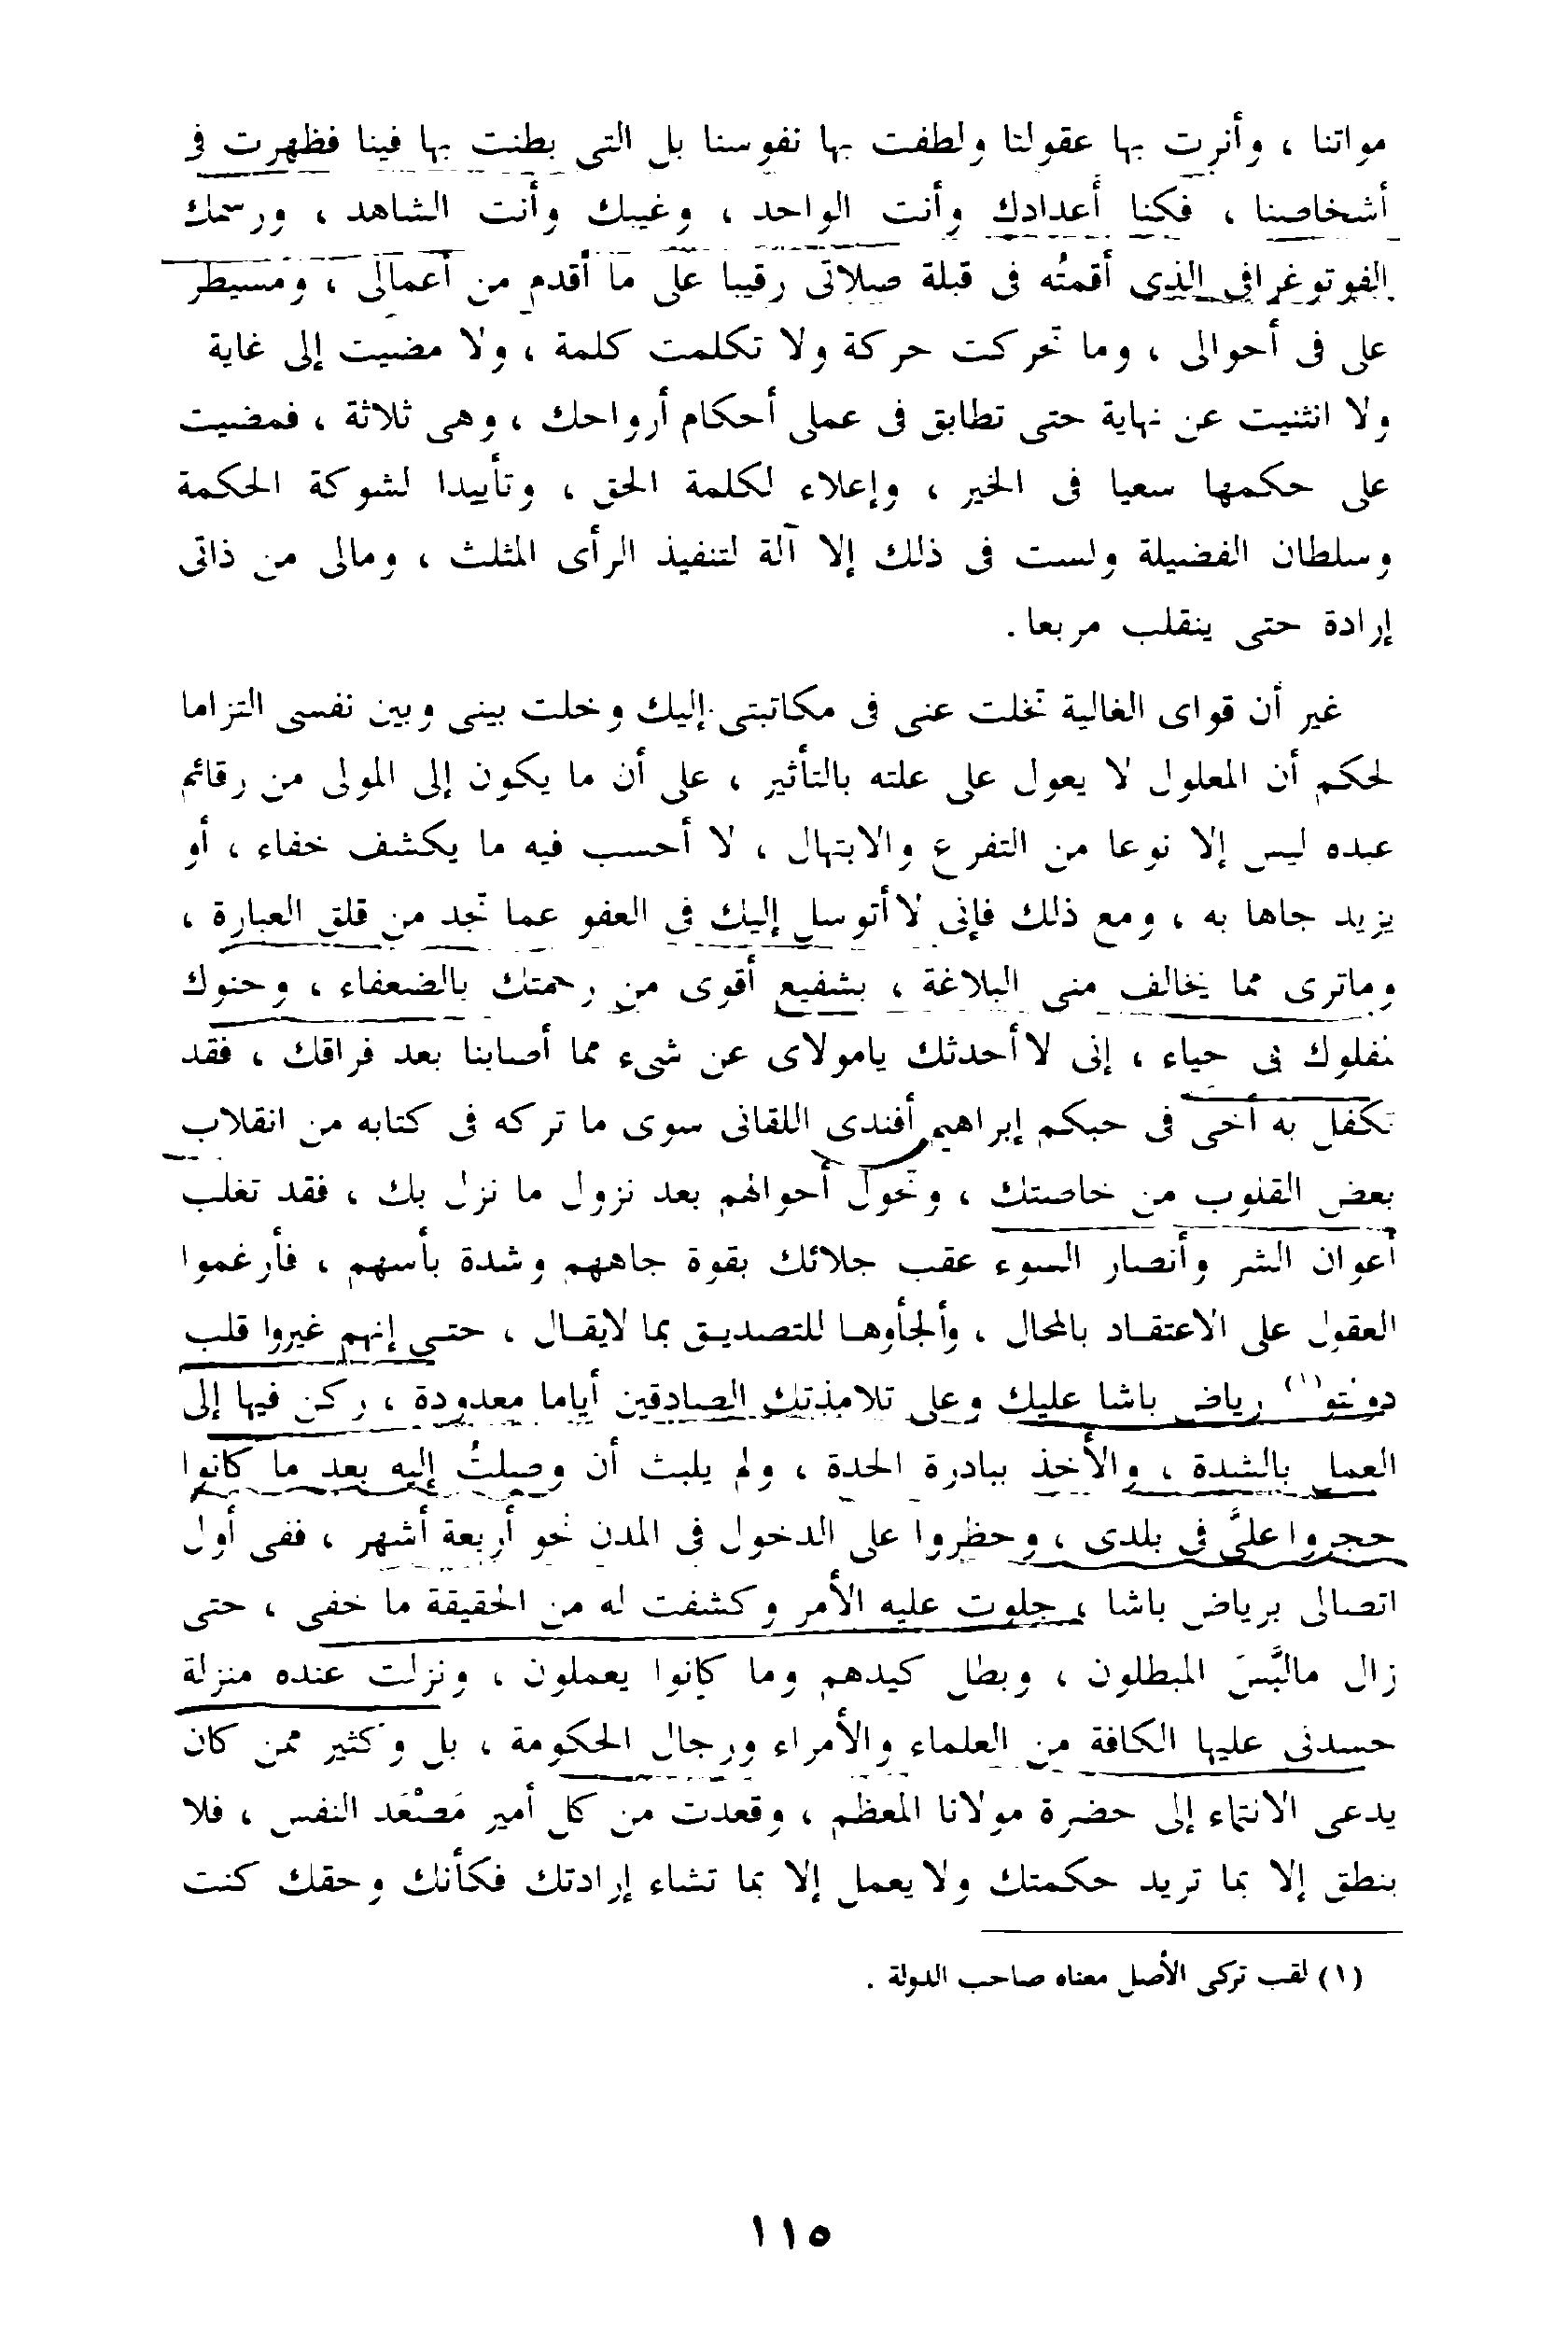 مواتنا ، وأنرت بها عقولنا ولطفت بها نفوسنا بل التى بطنت بها فينا فظهرت فى
أشخاصنا ، فكنا أعدادك وأنت الواحد ، وغيبك وأنت الشاهد ، ورسمك
الفوتوغرافى الذى أقمتُه فى قبلة صلاتى رقيبا على ما أقدم من أعمالى ، ومسيطر
على فى أحوالى ، وما تحركت حركة ولا تكلمت كلمة ، ولا مضيت إلى غاية
ولا انثنيت عن نهاية حتى تطابق فى عملى أحكام أرواحك ، وهى ثلاثة ، فمضيت
على حكمها سعيا فى الخير ، وإعلاء لكلمة الحق ، وتأييدا لشوكة الحكمة
وسلطان الفضيلة ولست فى ذلك إلا آلة لتنفيذ الرأى المثلث ، ومالى من ذاتى
إرادة حتى ينقلب مربعا .
غير أن قواى الغالية تخلت عنى فى مكاتبتى إليك وخلت بينى وبين نفسى التزاما
لحكم أن المعلول لا يعول على علته بالتأثير ، على أن ما يكون إلى المولى من رقائم
عبده ليس إلا نوعا من التفرع والابتهال ، لا أحسب فيه ما يكشف خفاء ، أو
يزيد جاها به ، ومع ذلك فإنى لاأتوسل إليك فى العفو عما تجد من قلق العبارة ،
وماترى مما يخالف منى البلاغة ، بشفيع أقوى من رحمتك بالضعفاء ، وحنوك
نفلوك فى حياء ، إنى لاأحدثك يامولاى عن شىء مما أصابنا بعد فراقك ، فقد
تكفل به أخى فى حبكم إبراهيم أفندى اللقانى سوى ما تركه فى كتابه من انقلاب
بعض القلوب من خاصتك ، وتحول أحوالهم بعد نزول ما نزل بك ، فقد تغلب
أعوان الشر وأنصار السوء عقب جلائك بقوة جاههم وشدة بأسهم ، فأرغموا
العقول على الاعتقاد بالمحال ، وألجأوها للتصديق بما لايقال ، حتى إنهم غيروا قلب
دولتو(١) رياض باشا عليك وعلى تلامذتك الصادقين أياما معدودة ، ركن فيها إلى
العمل بالشدة ، والأخذ ببادرة الحدة ، ولم يلبث أن وصلتُ إليه بعد ما كانوا
حجروا علىَّ فى بلدى ، وحظروا على الدخول فى المدن نحو أربعة أشهر ، ففى أول
اتصالى برياض باشا ، جلوت عليه الأمر وكشفت له من الحقيقة ما خفى ، حتى
زال مالبَّسَ المبطلون ، وبطل كيدهم وما كانوا يعملون ، ونزلت عنده منزلة
حسدنى عليها الكافة من العلماء والأمراء ورجال الحكومة ، بل وكثير ممن كان
يدعى الانتماء إلى حضرة مولانا المعظم ، وقعدت من كل أمير مَصْعَد النفس ، فلا
ينطق إلا بما تريد حكمتك ولا يعمل إلا بما تشاء إرادتك فكأنك وحقك كنت
(١) لقب تركى الأصل معناه صاحب الدولة .
١١٥